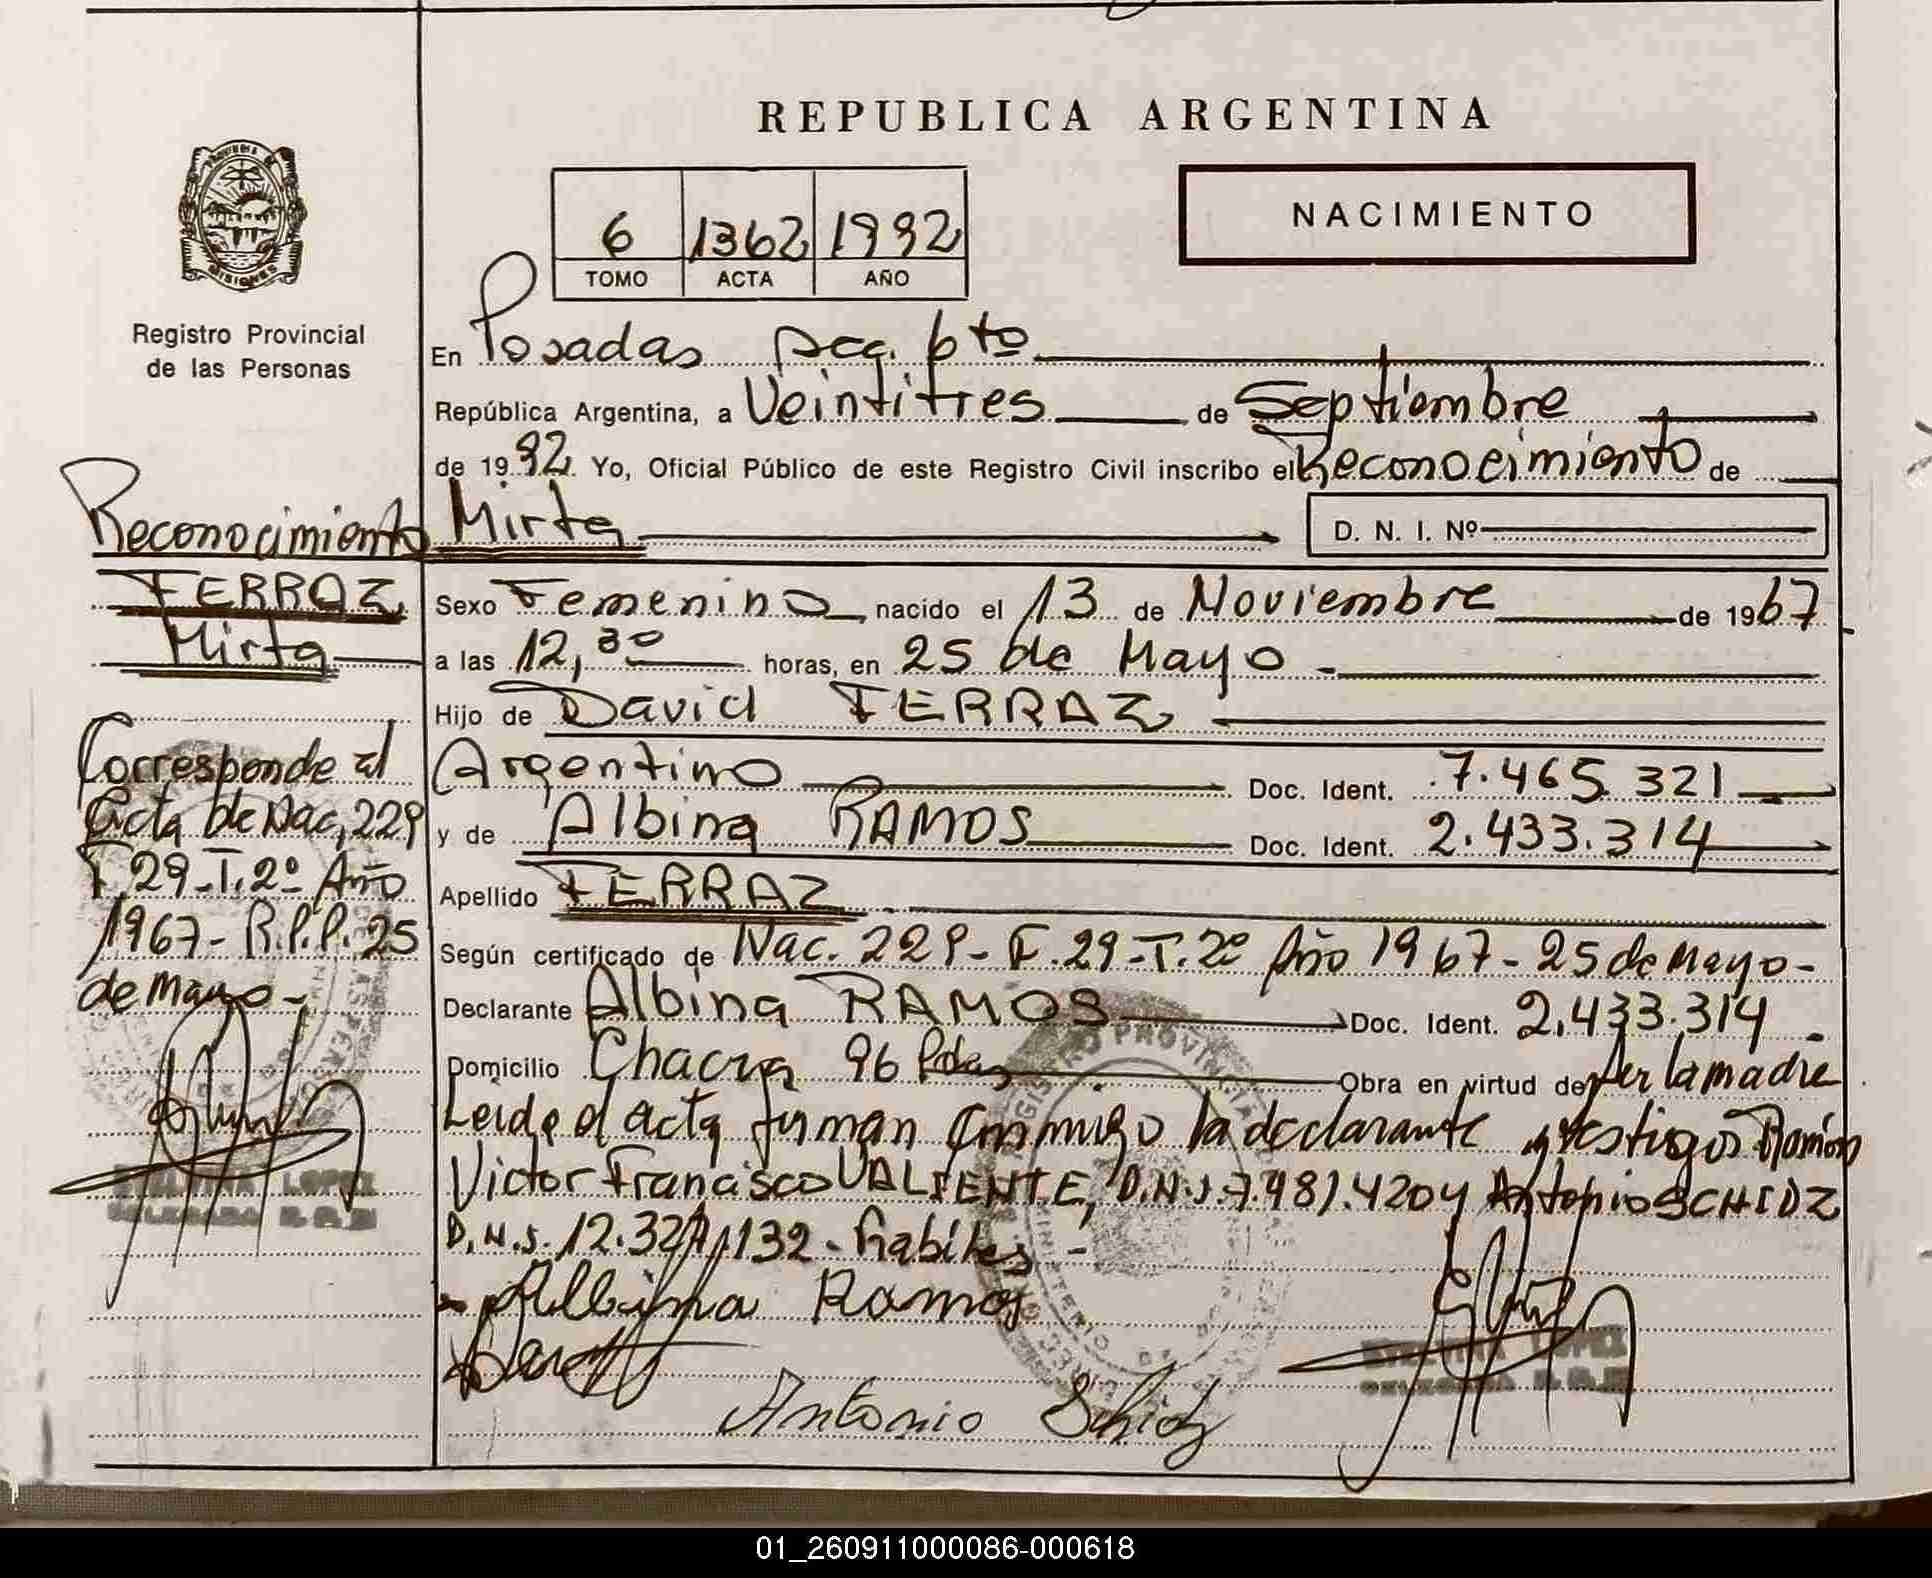 REPUBLICA ARGENTINA
NACIMIENTO
6 1362 1992
TOMO ACTA AÑO
MISIONES
Registro Provincial
de las Personas
En Posadas Dto
República Argentina, a Veintitres de Septiembre
de 1992. Yo, Oficial Público de este Registro Civil inscribo el Reconocimiento de
Mirta D. N. I. Nº
Sexo Femenino nacido el 13 de Noviembre de 1967
a las 12,30 horas, en 25 de Mayo -
Hijo de David FERRAZ
Argentino Doc. Ident. 7.465.321
y de Albina RAMOS Doc. Ident. 2.433.314
Apellido FERRAZ
Según certificado de Nac. 229- F. 29-T. 2º Año 1967-25 de Mayo-
Declarante Albina RAMOS Doc. Ident. 2.433.314
Domicilio Chacra 96 Pdas Obra en virtud de ser la madre
Leida el acta firman conmigo la declarante y testigos Ramón
Victor Francisco VALIENTE, D.N.I. 7.981.420 y Antonio SCHIDZ
D.N.I. 12.327.132 - habiles -
Albina Ramos
Antonio Schidz
LOPEZ
Reconocimiento
FERRAZ
Mirta
Corresponde al
Acta de Nac, 229
F. 29-T. 2º Año
1967- R.P.P. 25
de Mayo-
LOPEZ
REGISTRO PROVINCIAL
MINISTERIO DE
01_260911000086-000618